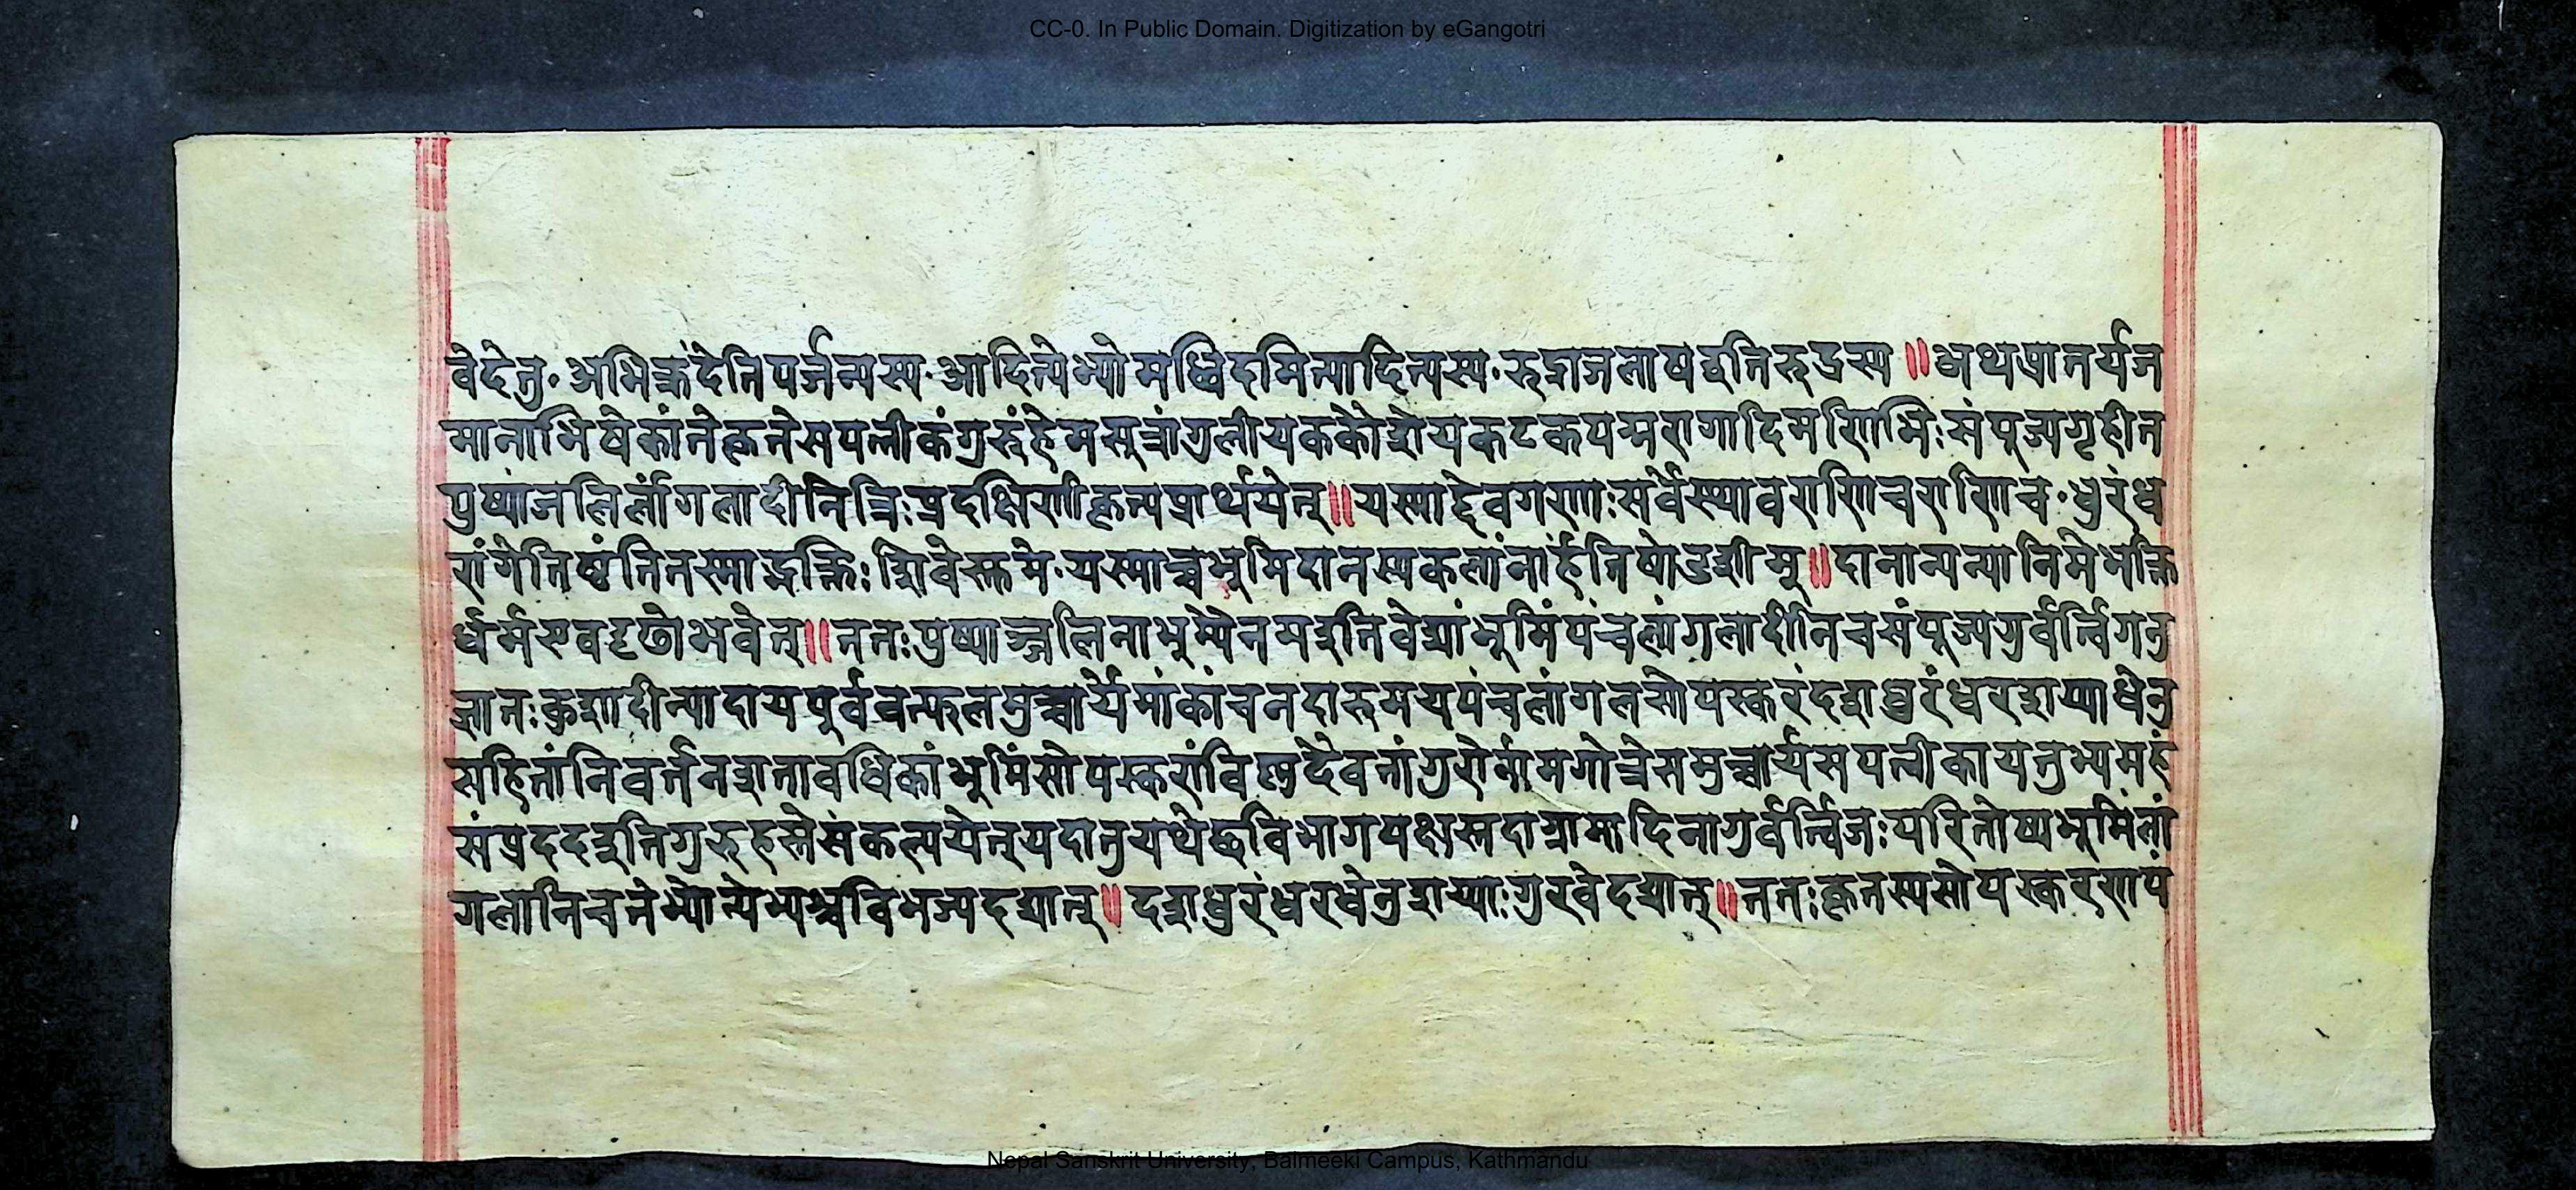 CC-0. In Public Domain. Digitization by eGangotri
वेदेतु॰ अभिक्रंदेतिपर्जन्यस्य॰आदित्येभ्योमध्विदमित्यादित्यस्य॰रुद्राजलाषद्युतिरुद्रस्य ॥ अथप्रातर्यज
मानाभिषेकांतेकृतेसपत्नीकंगुरुंहेमसूत्रांगुलीयककौशेयकटकपद्मरागादिमणिभिःसंपूज्यगृहीत
पुष्पांजलिर्लांगलादीनित्रिःप्रदक्षिणीकृत्यप्रार्थयेत्॥यस्माद्देवगणाःसर्वेस्थावराणिचराणिच॰धुरंध
रांगेतिष्ठंतितस्माद्भक्तिःशिवेस्तुमे॰यस्माच्चभूमिदानस्यकलांनार्हंतिषोडशीम्॥दानान्यन्यानिमेभक्ति
र्धर्मएवदृढोभवेत्॥ततःपुष्पाञ्जलिनाभूम्यैनमइतिवेद्यांभूमिंपंचलांगलादीनिचसंपूज्यगुर्वर्त्विगनु
ज्ञातःकुशादीन्यादायपूर्ववत्फलमुच्चार्येमांकांचनदारुमयपंचलांगलसोपस्करंदशधुरंधरशय्याधेनु
सहितांनिवर्तनशतावधिकांभूमिंसोपस्करांविष्णुदैवतांगुरोर्नामगोत्रेसमुच्चार्यसपत्नीकायतुभ्यमहं
संप्रददइतिगुरुहस्तेसंकल्पयेत्यदातुयथेष्टविभागपक्षस्तदाग्रामादिनागुर्वर्त्विजःपरितोष्यभूमिंलां
गलानिचतेभ्योन्येभ्यश्चविभज्यदद्यात्॥ दशधुरंधरधेनुशय्याःगुरवेदद्यात्॥ततःकृतस्यसोपस्करणपं
Nepal Sanskrit University, Balmeeki Campus, Kathmandu